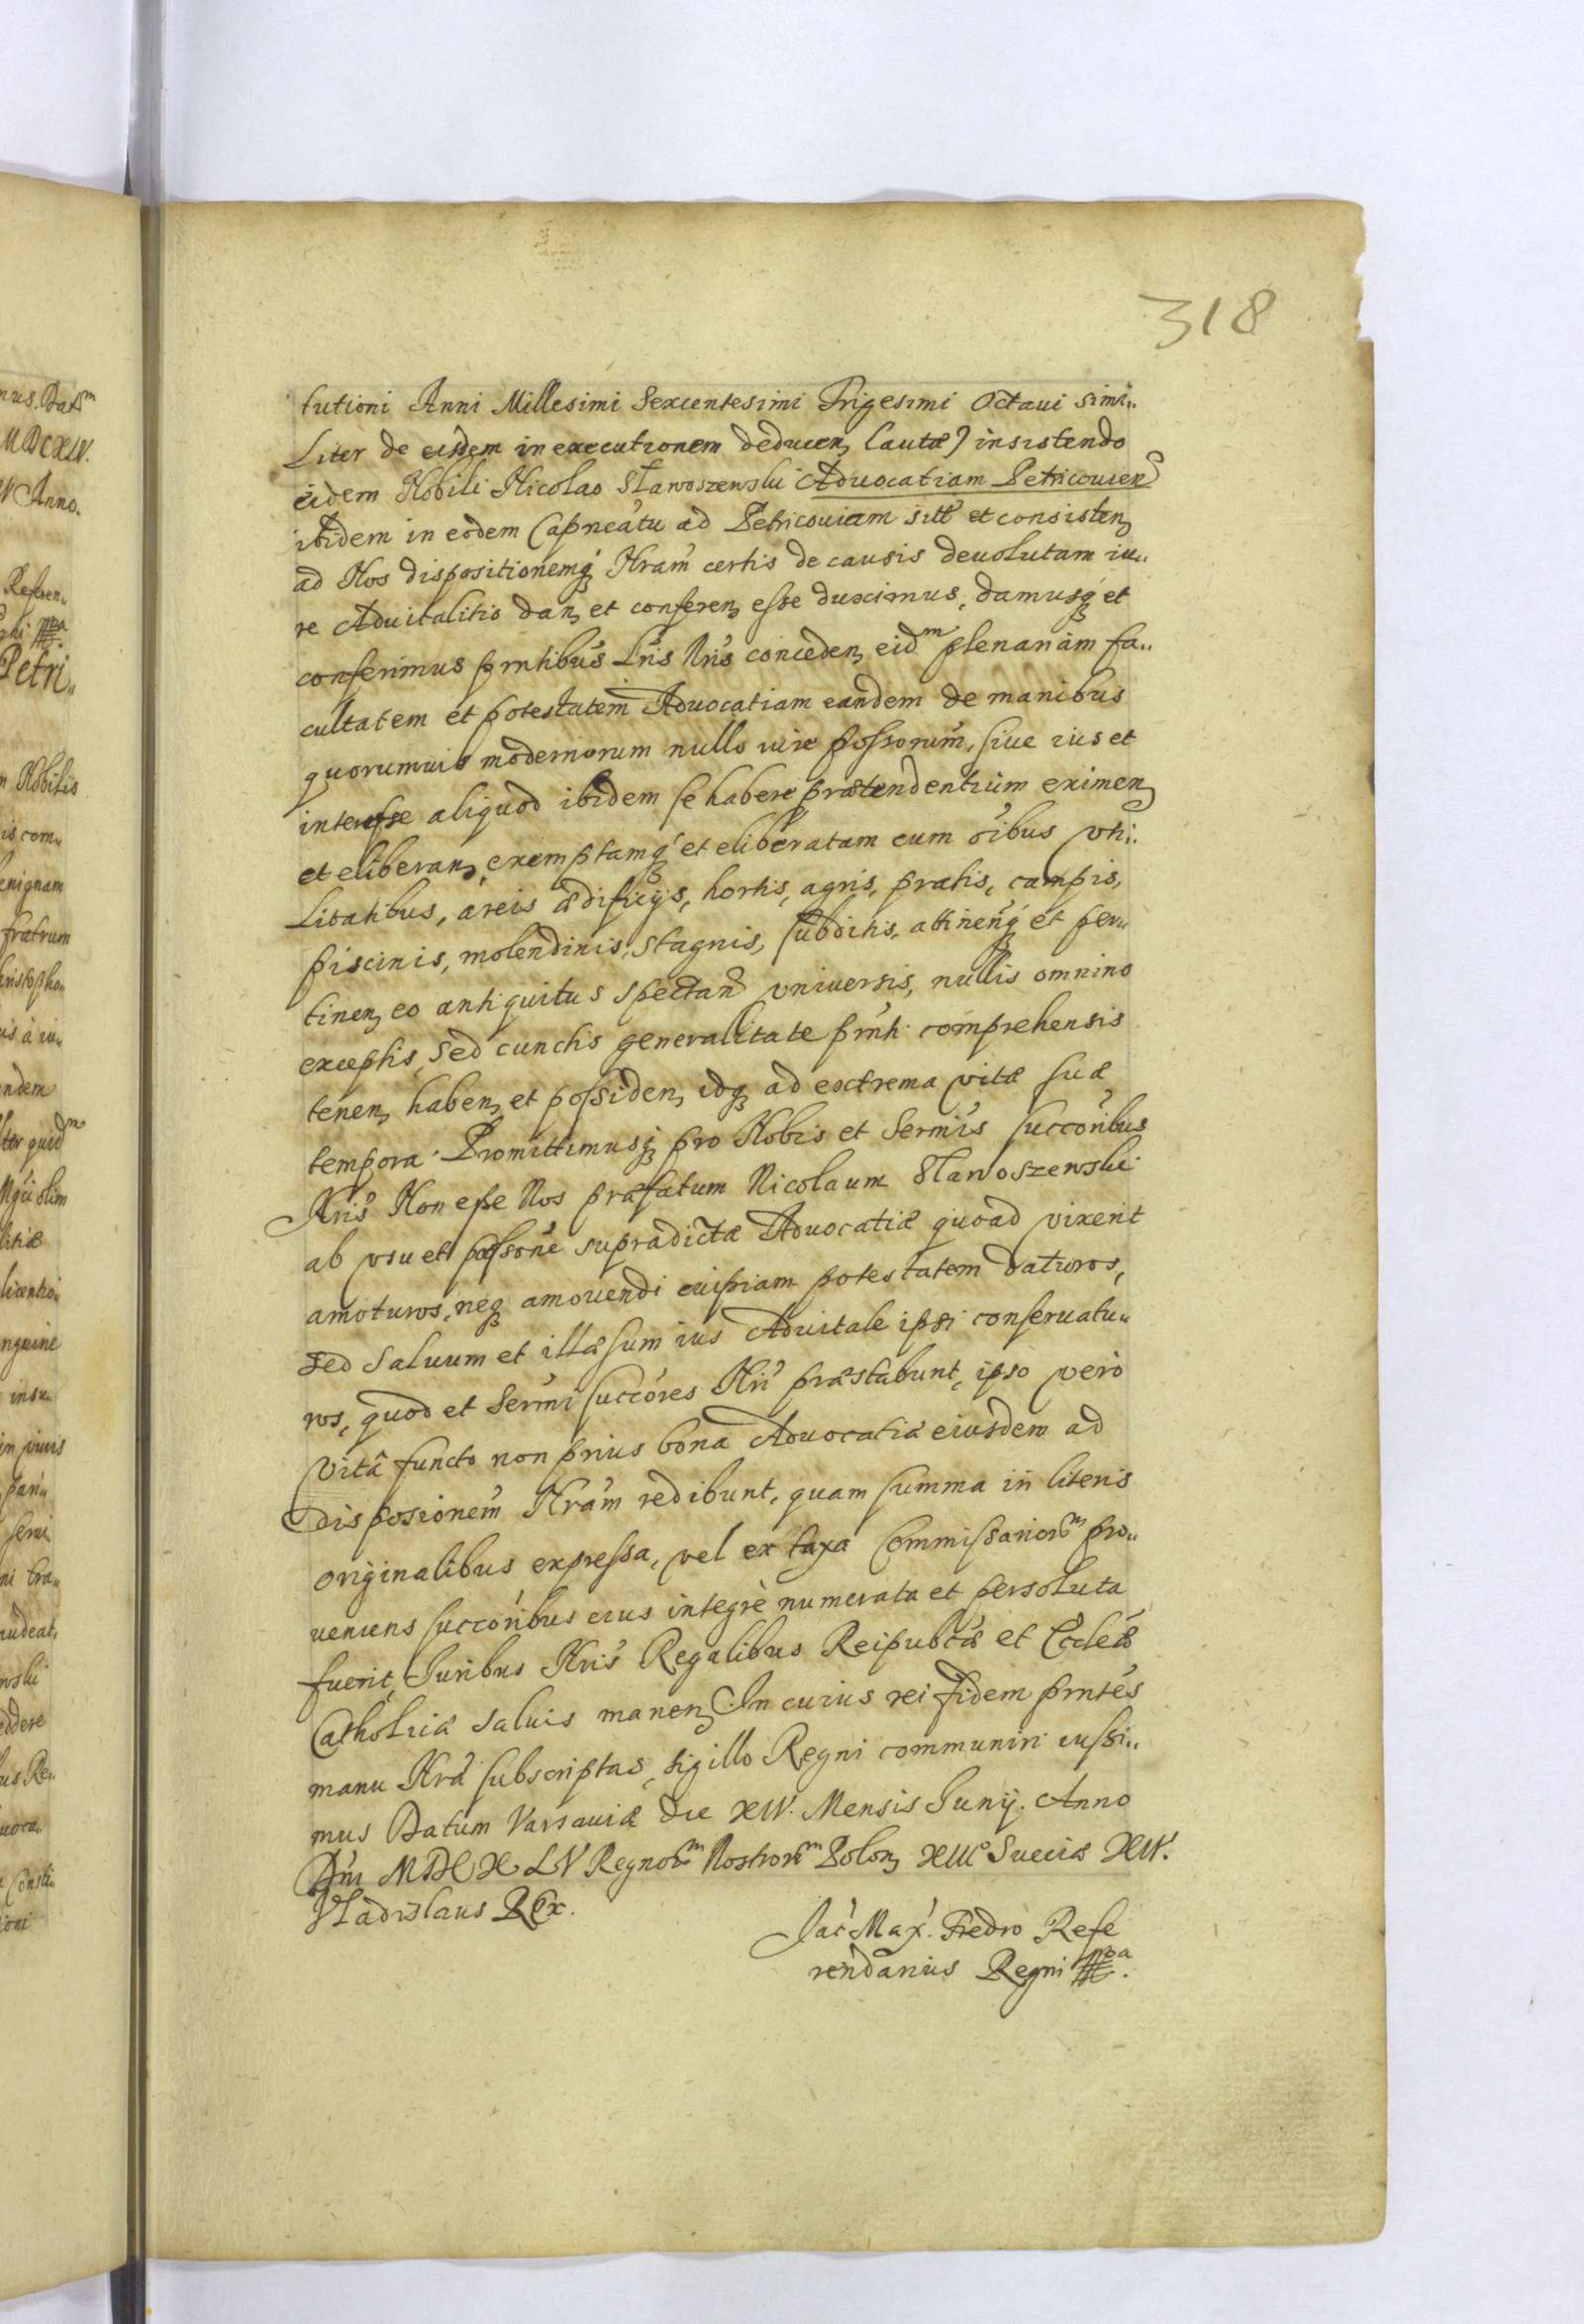 318
tutioni Anni Millesimi Sexcentesimi Trigesimi Octaui simi„
Liter de eisdem in executionem deducen, Cautæ) insistendo
eidem Nobili Nicolao Stawoszewski Aduocatiam Petricouien
ibidem in eodem Capneatu ad Petricouiam sitt et consisten,
ad Nos dispositionemq₃ Nram certis de causis deuolutam iu„
re Aduitalitio dan, et conferen, esse duximus, damusq₃ et
conferimus pntibus Lris Nris conceden, eidᵐ plenariam fa„
cultatem et potestatem Aduocatiam eandem de manibus
quorumuis modernorum nullo iure possorum, siue ius et
interesse aliquod ibidem se habere prætendentium eximen,
et eliberan, exemptamq₃ et eliberatam cum oibus vti„
Litatibus, areis ædificijs, hortis, agris, pratis, campis,
piscinis, molendinis, stagnis, subditis, attinenq₃ et per„
tinen, eo antiquitus spectan vniuersis, nullis omnino
exceptis, sed cunctis generalitate pnti comprehensis
tenen, haben, et possiden, idq₃ ad extrema vitæ suæ
tempora. Promittimusq₃ pro Nobis et Sermis Succoribus
Nris Non esse Nos præfatum Nicolaum Stawoszewski
ab vsu et possone supradictæ Aduocatiæ quoad vixerit
amoturos, neq₃ amouendi cuipiam potestatem daturos,
sed Saluum et illæsum ius Aduitale ipsi conseruatu„
ros, quod et Sermi succores Nri præstabunt, ipso vero
Vitâ functo non prius bona Aduocatiæ eiusdem ad
disposionem Nram redibunt, quam summa in literis
originalibus expressa, vel ex taxa Commissariorᵐ pro„
ueniens succoribus eius integrè numerata et persoluta
fuerit, Iuribus Nris Regalibus Reipublcæ et Ecclæ
Catholicæ saluis manen, In cuius rei fidem pntes
manu Nra subscriptas, sigillo Regni communiri iussi„
mus Datum Varsauiæ die XIV. Mensis Iunij. Anno
Dni MDCXLV Regnorᵐ Nostrorᵐ Polon, XIII° Sueciæ XIV.
Vladislaus REx.
Jac Max. Fredro Refe
rendarius Regni mpa.